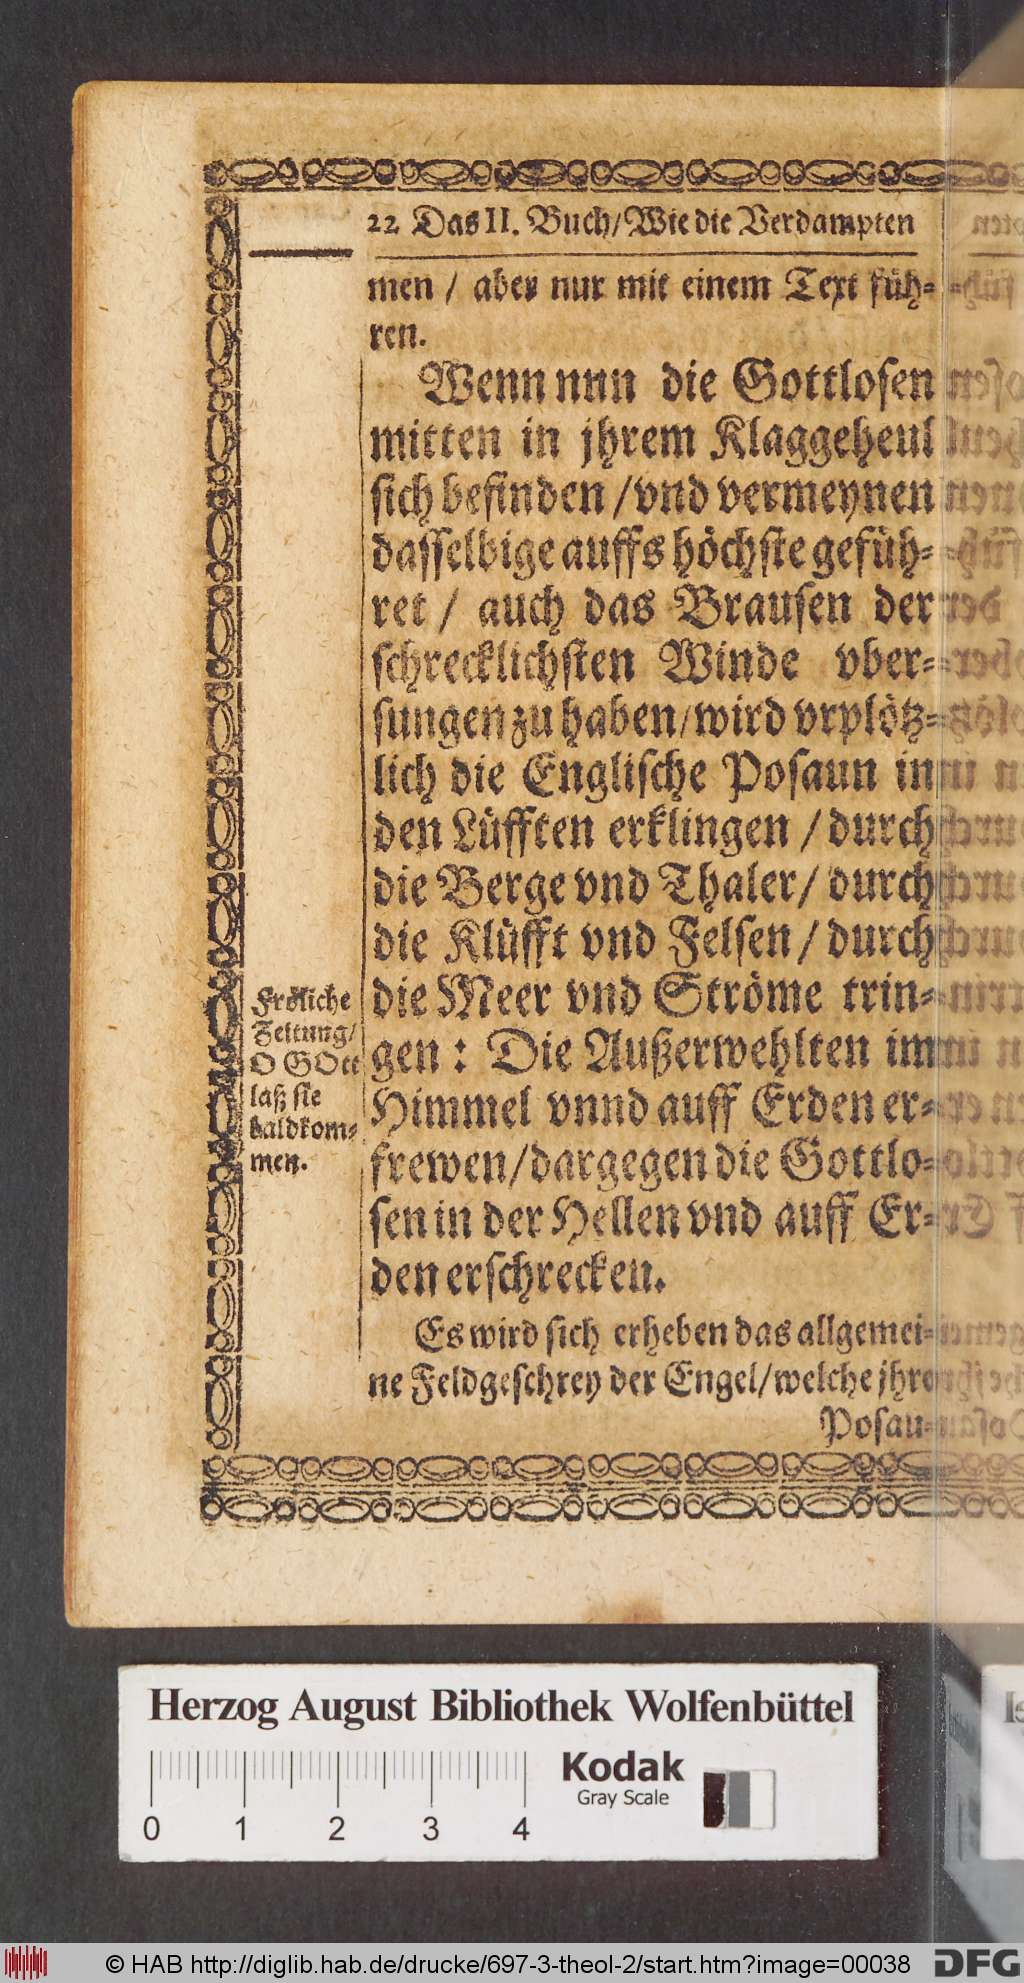 22 Das II. Buch/Wie die Verdampten
men / aber nur mit einem Text füh-
ren.
Wenn nnn die Gottlosen
mitten in jhrem Klaggeheul
sich befinden/vnd vermeynen
dasselbige auffs höchste gefüh-
ret / auch das Brausen der
schrecklichsten Winde vber-
sungen zu haben/wird vrplötz-
lich die Englische Posaun in
den Lüfften erklingen / durch
die Berge vnd Thaler/ durch
die Klüfft vnd Felsen / durch
die Meer vnd Ströme trin-
gen : Die Außerwehlten im
Himmel vnnd auff Erden er-
frewen/dargegen die Gottlo-
sen in der Hellen vnd auff Er-
den erschrecken.
Es wird sich erheben das allgemei-
ne Feldgeschrey der Engel/welche jhre
Posau-
Fröliche
Zeitung/
O GOtt
laß sie
bald kom-
men.
Herzog August Bibliothek Wolfenbüttel
0 1 2 3 4
Kodak
Gray Scale
© HAB http://diglib.hab.de/drucke/697-3-theol-2/start.htm?image=00038
DFG